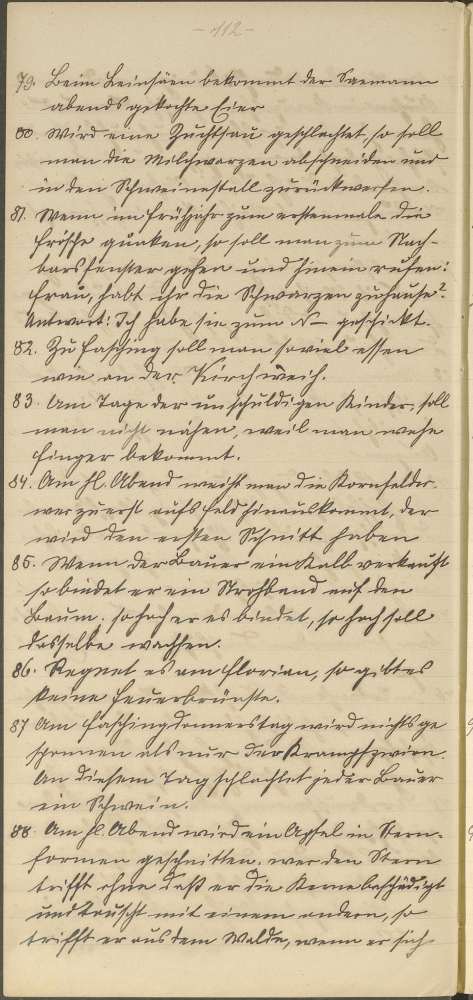 - 112 -
79. Beim Leinsäen bekommt der Saemann
abends gekochte Eier
80. Wird eine Zuchtsau geschlachtet, so soll
man die Milchwarzen abschneiden und
in den Schweinestall zurückwerfen.
81. Wenn im Frühjahr zum erstenmale die
Frösche quaken, so soll man zum Nach-
barsfenster gehen und hinein rufen:
Frau, habt ihr die Schwarzen zuhause?
Antwort: Ich habe sie zum N— geschickt.
82. Zu Fasching soll man soviel essen
wie an der Kirchweih.
83. Am Tage der unschuldigen Kinder, soll
man nicht nähen, weil man wehe
Finger bekommt.
84. Am hl. Abend weist man die Kornfelder.
wer zuerst aufs Feld hinauskommt, der
wird den ersten Schnitt haben
85. Wenn der Bauer ein Kalb verkauft
so bindet er ein Strohband auf den
Baum. so hoch er es bindet, so hoch soll
dasselbe wachsen.
86. Regnet es am Florian, so gibt es
keine Feuerbrünste.
87 Am Faschingdonnerstag wird nichts ge
sponnen als nur der Krampfzwirn.
An diesem Tag schlachtet jeder Bauer
ein Schwein.
88. Am hl. Abend wird ein Apfel in Stern-
formen geschnitten. wer den Stern
trifft ohne daß er die Kerne beschädigt
und tauscht mit einem andern, so
trifft er aus dem Walde, wenn er sich